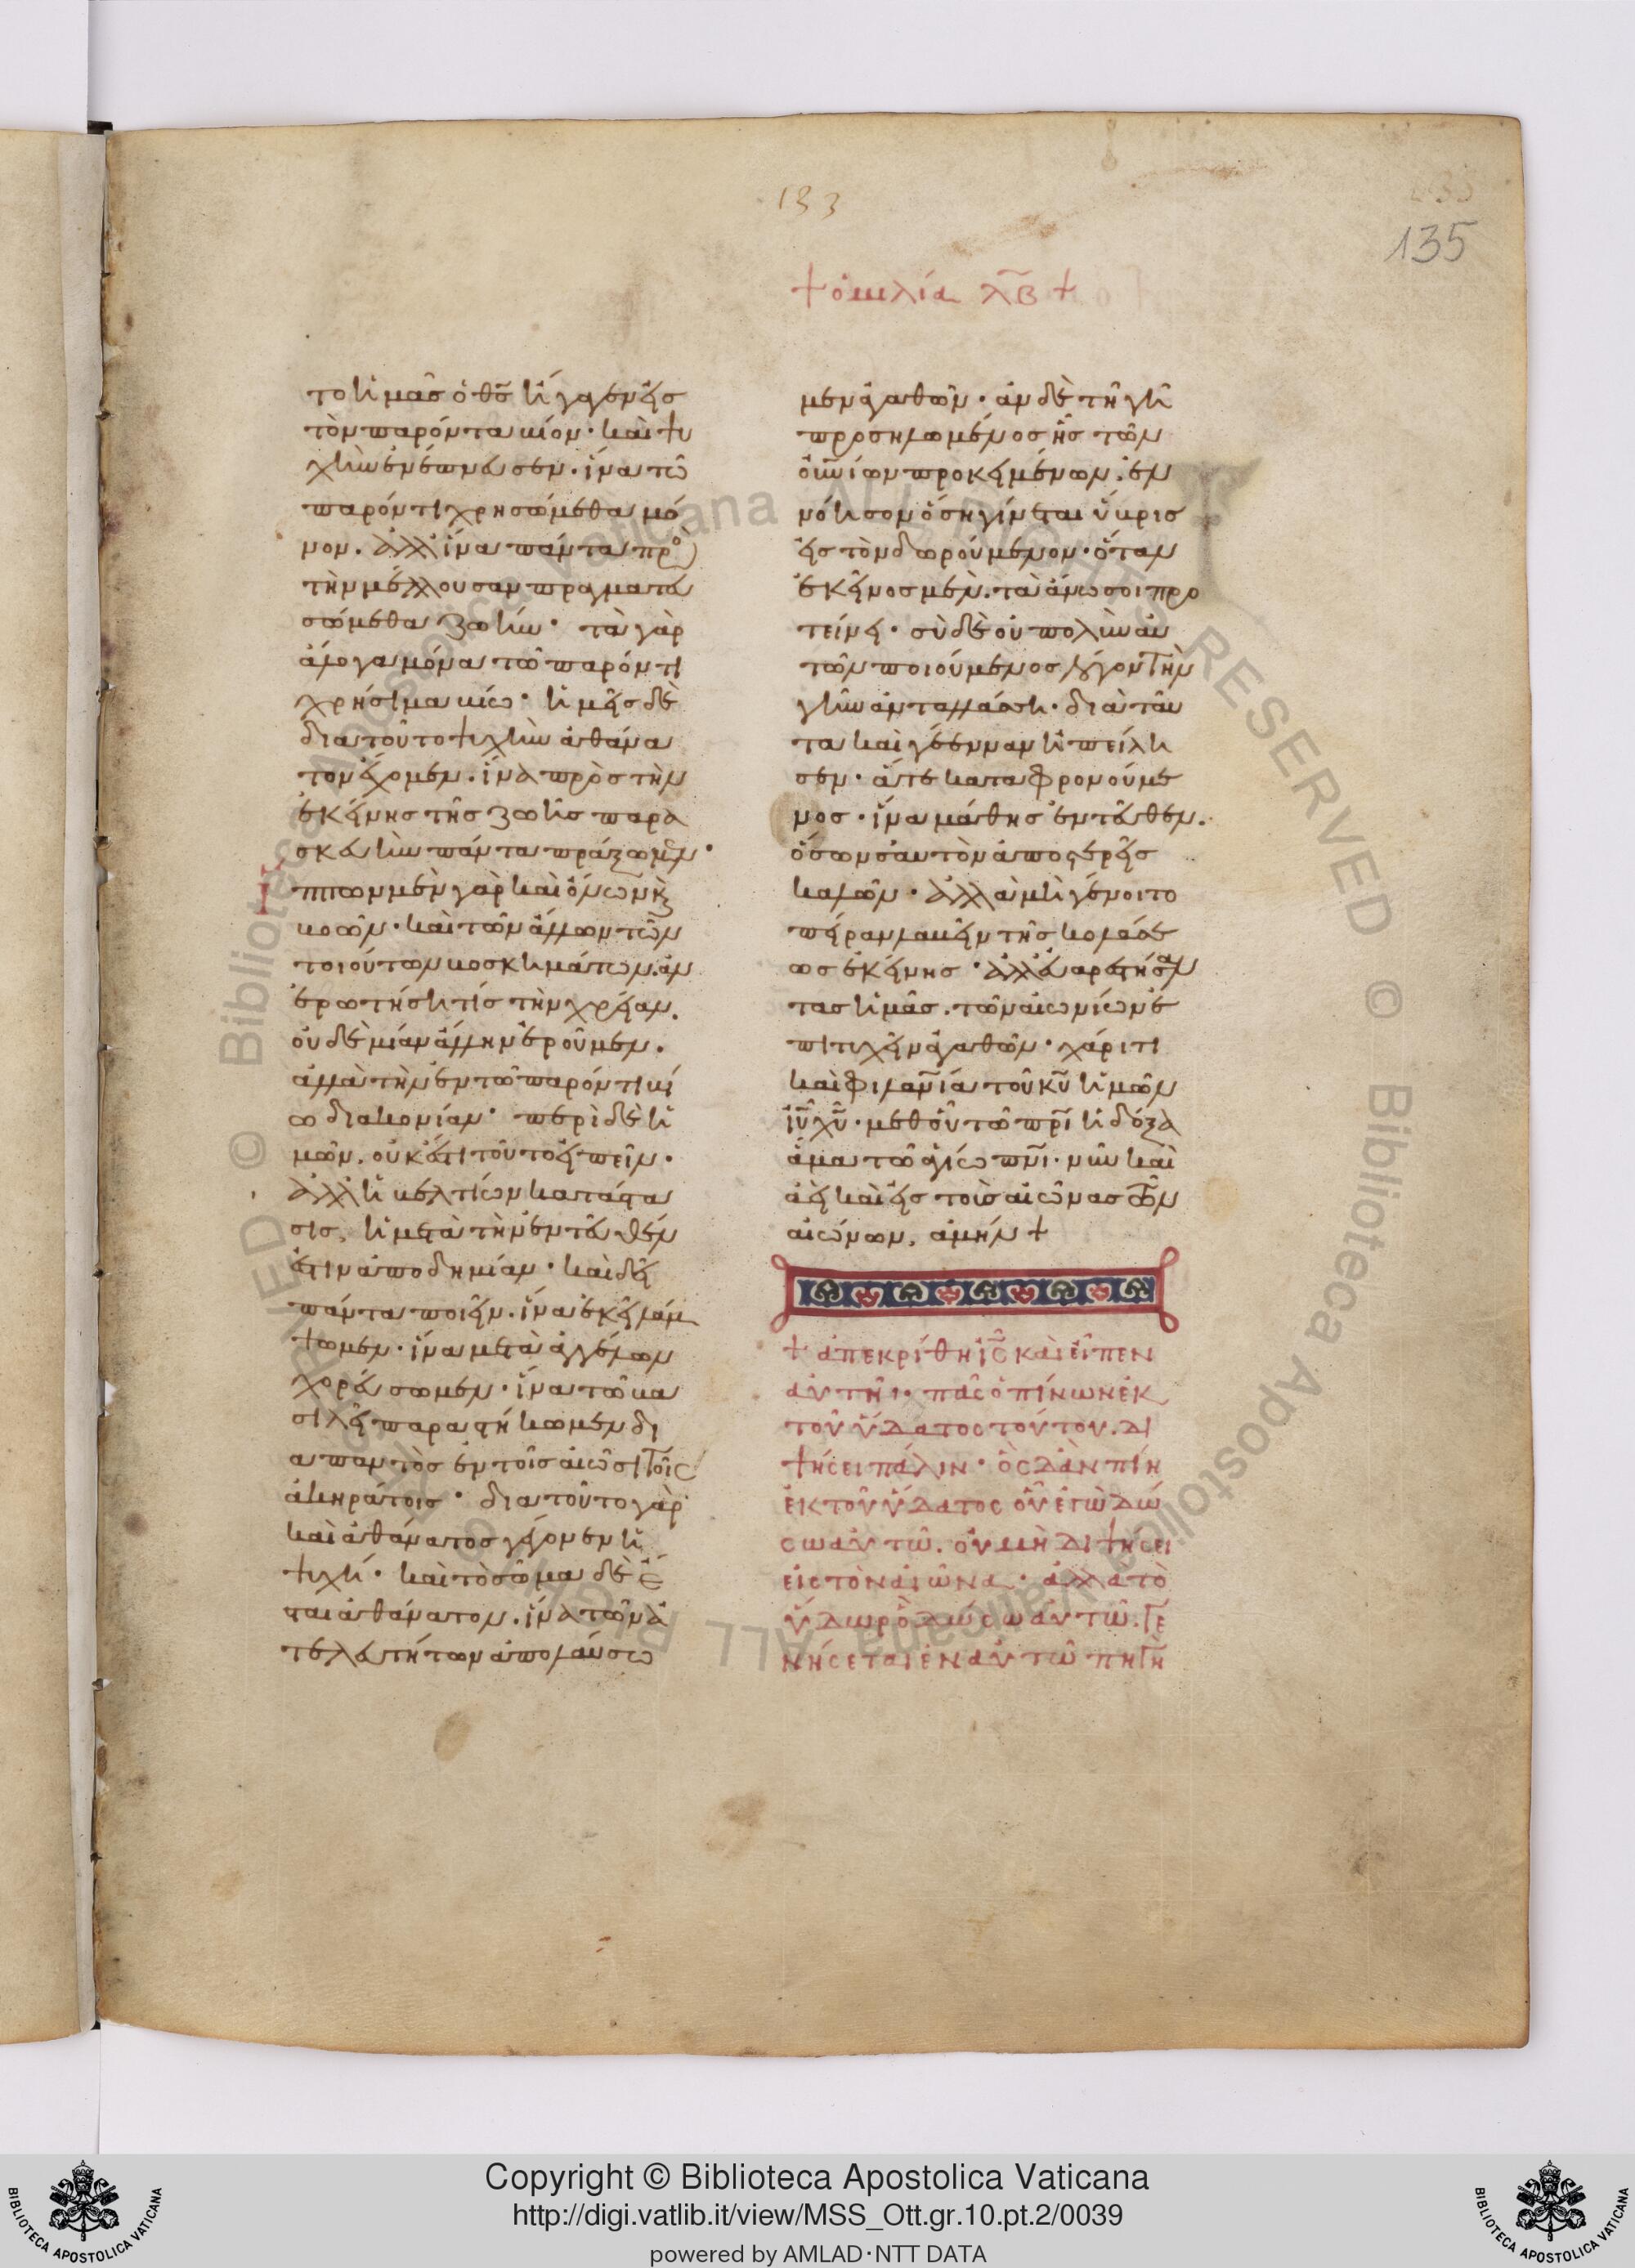 133
135
+ ὁμιλία λβ +
το ἡμᾶς ὁ θς ἤγαγεν εἰς
τὸν παρόντα βίον· καὶ ψυ
χὴν ἐνέπνευσεν. ἵνα τῶ
παρόντι χρησώμεθα μό
νον. ἀλλ ἵνα πάντα πρὸ
τὴν μέλλουσαν πραγματευ
σώμεθα ζωήν· τὰ γὰρ
ἄλογα μόνα τῶ παρόντι
χρήσιμα βίω· ἡμεῖς δὲ
διατοῦτο ψυχὴν ἀθάνα
τον ἔχομεν. ἵνα πρὸς τὴν
ἐκείνης τῆς ζωῆς παρα
σκευὴν πάντα πράξωμεν·
ἵππων μὲν γὰρ καὶ ὄνων κ
βοῶν· καὶ τῶν ἄλλων τῶν
τοιούτων βοσκημάτων. ἂν
ἐρωτήση τίς τὴν χρείαν.
οὐδεμίαν ἄλλην ἐροῦμεν.
ἀλλὰ τὴν ἐν τῶ παρόντι βί
ω διακονίαν· περὶ δὲ ἡ
μῶν. οὐκ ἔστι τοῦτο εἰπεῖν·
ἀλλ ἡ βελτίων κατάστα
σις, ἡ μετὰ τὴν ἐντεῦθέν
ἐστιν ἀποδημίαν· καὶ δεῖ
πάντα ποιεῖν. ἵνα ἐκεῖ λάμ
ψωμεν· ἵνα μετὰ ἀγγέλων
χορεύσωμεν· ἵνα τῶ βα
σιλεῖ παραστήκωμεν δι
α παντὸς ἐν τοῖς αἰῶσι τοῖς
ἀκηράτοις· διατοῦτο γὰρ
καὶ ἀθάνατος γέγονεν ἡ
ψυχή· καὶ τὸ σῶμα δὲ ἔ
σται ἀθάνατον. ἵνα τῶν ἀ
τελευτήτων ἀπολαύσω
μεν ἀγαθῶν· ἂν δὲ τῆ γῆ
προσηλωμένος ἦς τῶν
οὐνίων προκειμένων. ἐν
νόησον ὅση γίνεται ὕβρις
εἰς τὸν δωρούμενον· ὅταν
ἐκεῖνος μὲν. τὰ ἄνω σοι προ
τείνει· σὺ δὲ οὐ πολὺν αὐ
τῶν ποιούμενος λόγον τὴν
γῆν ἀνταλλάσση· διὰ ταῦ
τα καὶ γέενναν ἠπείλη
σεν· ἅτε καταφρονούμε
νος· ἵνα μάθης ἐντεῦθεν.
ὅσων σαυτὸν ἀποστερεῖς
καλῶν· ἀλλὰ μὴ γένοιτο
πεῖραν λαβεῖν τῆς κολάσε
ως ἐκείνης· ἀλλ εὐαρεστήσαν
τας ἡμᾶς. τῶν αἰωνίων ἐ
πιτυχεῖν ἀγαθῶν· χάριτι
καὶ φιλανία τοῦ κυ ἡμῶν
ιυ χυ· μεθ οὗ τῶ πρι ἡ δόξα
ἅμα τῶ ἁγίω πνι· νῦν καὶ
ἀεὶ καὶ εἰς τοὺς αἰῶνας τῶν
αἰώνων. ἀμήν +
+ ἀπεκρίθη ις καὶ εἶπεν
αὐτῆι· πᾶς ὁ πίνων ἐκ
τοῦ ὕδατος τούτου. δι
ψήσει πάλιν· ὃς δ᾽ ἂν πίη
ἐκ τοῦ ὕδατος οὗ ἐγὼ δώ
σω αὐτῶ. οὐ μὴ διψήσει
εἰς τὸν αἰῶνα· ἀλλὰ τὸ
ὕδωρ ὃ δώσω αὐτῶ. γε
νήσεται ἐν αὐτῶ πηγὴ
Copyright © Biblioteca Apostolica Vaticana
http://digi.vatlib.it/view/MSS_Ott.gr.10.pt.2/0039
powered by AMLAD·NTT DATA
BIBLIOTECA APOSTOLICA VATICANA
BIBLIOTECA APOSTOLICA VATICANA